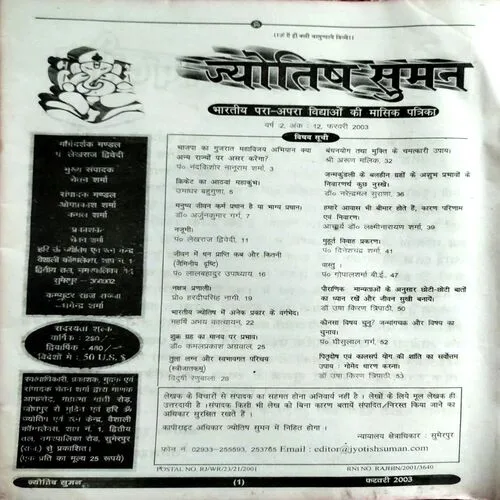 ज्योतिष सुमन
भारतीय परा-अपरा विद्याओं की मासिक पत्रिका
वर्ष 2, अंक : 12, फरवरी 2003
मार्गदर्शक मण्डल
पं. लेखराज द्विवेदी
मुख्य संपादक
चेतन शर्मा
संपादक मण्डल
ओमप्रकाश शर्मा
कमल शर्मा
प्रकाशक
चेतन शर्मा
हरि ॐ ज्योतिष एवं रत्न केन्द्र
वैशाली कॉम्पलेक्स, शाप नं. 1
द्वितीय तल, नगरपालिका रोड
सुमेरपुर - 306902
कम्प्यूटर राज सज्जा
शर्मा
सदस्यता शुल्क
वार्षिक : 250/-
द्विवार्षिक : 450/-
विदेशों में : 50 U.S. $
स्वत्वाधिकारी, प्रकाशक, मुद्रक एवं
संपादक चेतन शर्मा द्वारा माणक
आफसेट, महात्मा गांधी रोड,
जोधपुर से मुद्रित एवं हरि ॐ
ज्योतिष एवं रत्न केन्द्र, वैशाली
कॉम्पलेक्स, शाप नं. 1, द्वितीय
तल, नगरपालिका रोड, सुमेरपुर
(राज.) से प्रकाशित।
(एक प्रति का मूल्य 25 रूपये)
विषय सूची
भाजपा का गुजरात महाविजय अभियान क्या
अन्य राज्यों पर असर करेगा?
पं. नन्दकिशोर नानूराम शर्मा, 3
क्रिकेट का आठवां महाकुंभ।
उमाधर बहुगुणा, 5
मनुष्य जीवन कर्म प्रधान है या भाग्य प्रधान।
डॉ. अर्जुनकुमार गर्ग, 7
नजूमी।
पं. लेखराज द्विवेदी, 11
जीवन में धन प्राप्ति कब और कितनी
(जैमिनीय दृष्टि)
पं. लालबहादुर उपाध्याय, 16
नक्षत्र प्रणाली।
प्रो. हरदीपसिंह नागी, 19
भारतीय ज्योतिष में अनेक प्रकार के वर्गभेद।
महर्षि अभय कात्यायन, 22
शुक्र ग्रह का मानव पर प्रभाव।
डॉ. कमलप्रकाश अग्रवाल, 25
तुला लग्न और स्वभावगत परिचय
(स्त्रीजातकम्)
विदुषी रेणुबाला, 28
बंधनयोग तथा मुक्ति के चमत्कारी उपाय।
श्री अरूण मलिक, 32
जन्मकुंडली के बलहीन ग्रहों के अशुभ प्रभावों के
निवारणार्थ कुछ नुस्खे।
डॉ. नरेन्द्रमल सुराणा, 36
हमारे आवास भी बीमार होते हैं, कारण परिणाम
एवं निवारण।
आचार्य डॉ. लक्ष्मीनारायण शर्मा, 39
मुहूर्त विवाह प्रकरण।
पं. दिनेशचन्द्र शर्मा, 41
वास्तु।
पं. गोपालशर्मा बी.ई. 47
पौराणिक मान्यताओं के अनुसार छोटी-छोटी बातों
का ध्यान रखें और जीवन सुखी बनायें।
डॉ उषा किरण त्रिपाठी, 50
कौनसा विषय चुनूं? जन्मांगचक्र और विषय का
चुनाव।
पं. धीसुलाल गर्ग, 52
पितृदोष एवं कालसर्प योग की शांति का सर्वोत्तम
उपाय : गोमेद धारण करना।
डॉ उषा किरण त्रिपाठी, 53
लेखक के विचारों से संपादक का सहमत होना अनिवार्य नहीं है। लेखों के लिये मूल लेखक ही
उत्तरदायी है। संपादक किसी भी लेख को बिना कारण बताये संपादित/निरस्त किया जाने का
अधिकार सुरक्षित रखते हैं।
कापीराइट अधिकार ज्योतिष सुमन में निहित होगा।
न्यायालय क्षेत्राधिकार : सुमेरपुर
फोन नं. 02933-255593, 253765 Email : editor@jyotishsuman.com
POSTAL NO. RJ/WR/23/21/2001 RNI NO. RAJHIN/2001/3640
ज्योतिष सुमन (1) फरवरी 2003